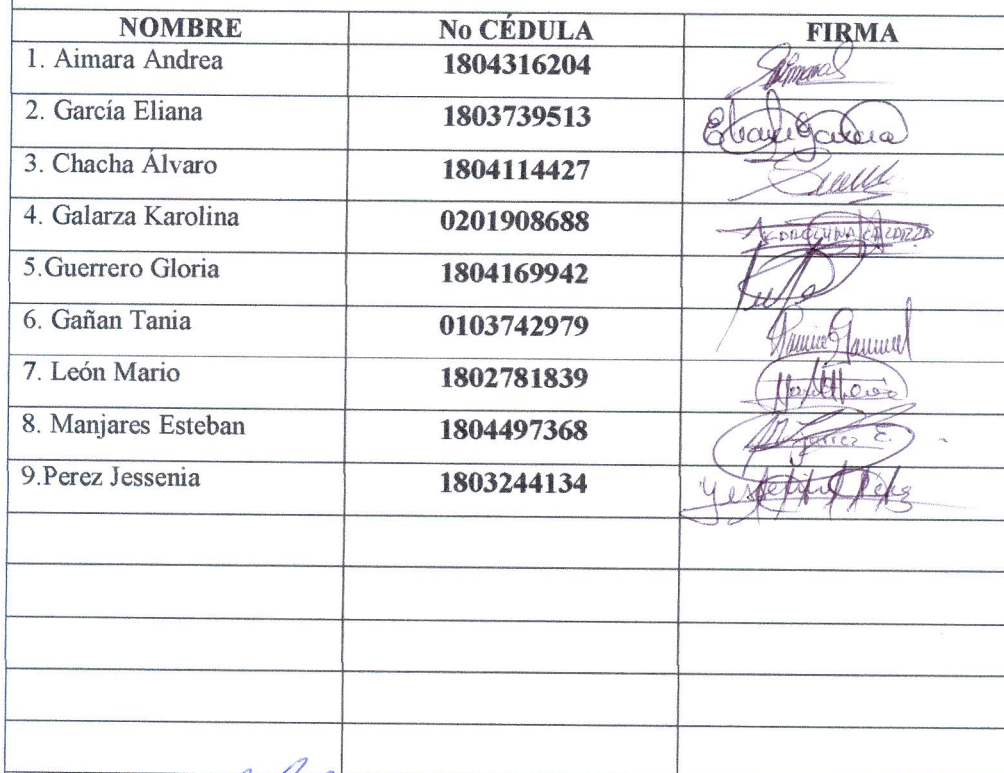 NOMBRE No CÉDULA FIRMA
1. Aimara Andrea 1804316204
2. García Eliana 1803739513 Eliana García
3. Chacha Álvaro 1804114427
4. Galarza Karolina 0201908688
5.Guerrero Gloria 1804169942
6. Gañan Tania 0103742979
7. León Mario 1802781839
8. Manjares Esteban 1804497368
9.Perez Jessenia 1803244134